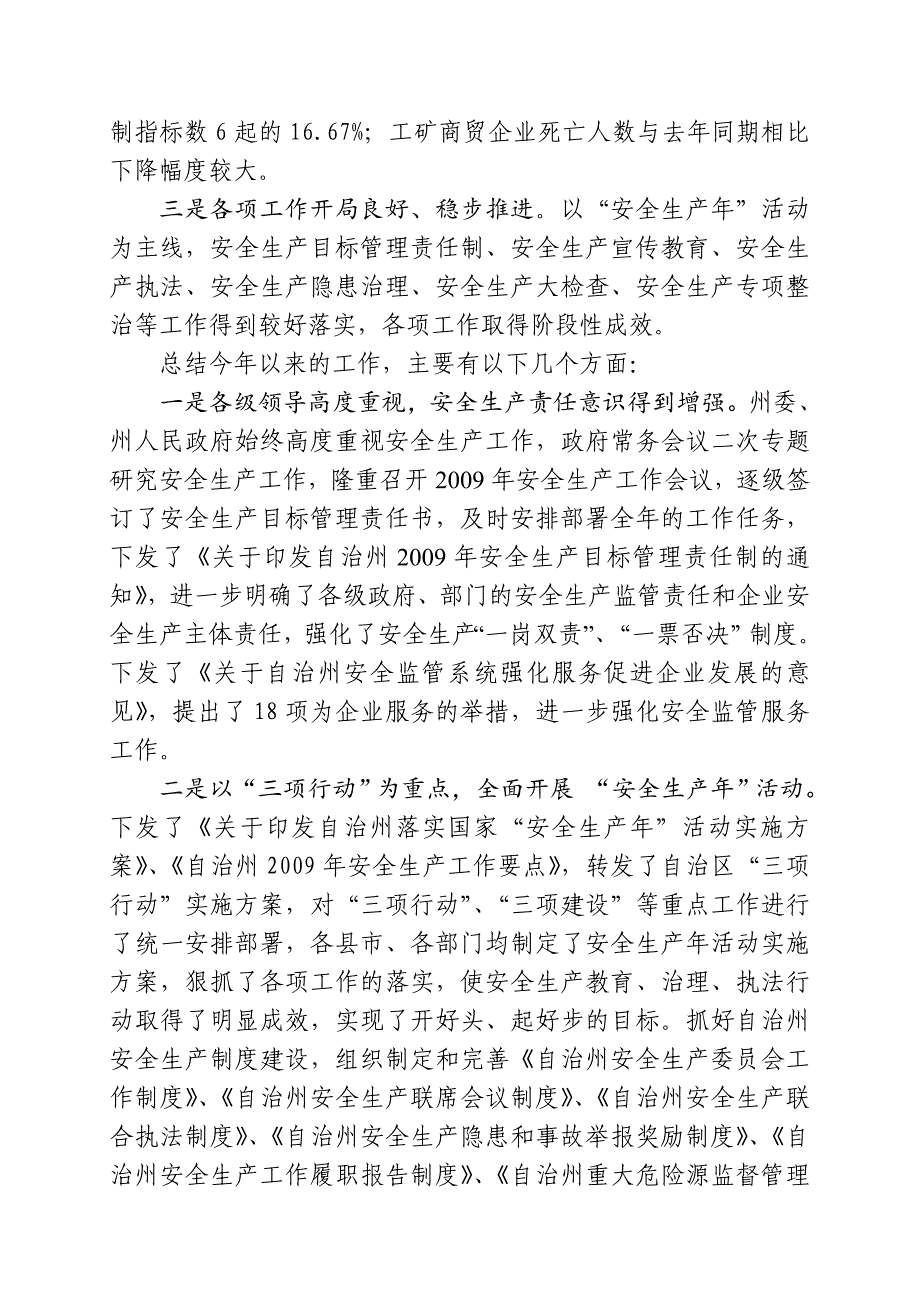 制指标数 6 起的 16.67%；工矿商贸企业死亡人数与去年同期相比
下降幅度较大。
三是各项工作开局良好、稳步推进。以“安全生产年”活动
为主线，安全生产目标管理责任制、安全生产宣传教育、安全生
产执法、安全生产隐患治理、安全生产大检查、安全生产专项整
治等工作得到较好落实，各项工作取得阶段性成效。
总结今年以来的工作，主要有以下几个方面：
一是各级领导高度重视，安全生产责任意识得到增强。州委、
州人民政府始终高度重视安全生产工作，政府常务会议二次专题
研究安全生产工作，隆重召开 2009 年安全生产工作会议，逐级签
订了安全生产目标管理责任书，及时安排部署全年的工作任务，
下发了《关于印发自治州 2009 年安全生产目标管理责任制的通
知》，进一步明确了各级政府、部门的安全生产监管责任和企业安
全生产主体责任，强化了安全生产“一岗双责”、“一票否决”制度。
下发了《关于自治州安全监管系统强化服务促进企业发展的意
见》，提出了 18 项为企业服务的举措，进一步强化安全监管服务
工作。
二是以“三项行动”为重点，全面开展 “安全生产年”活动。
下发了《关于印发自治州落实国家“安全生产年”活动实施方
案》、《自治州 2009 年安全生产工作要点》，转发了自治区“三项
行动”实施方案，对“三项行动”、“三项建设”等重点工作进行
了统一安排部署，各县市、各部门均制定了安全生产年活动实施
方案，狠抓了各项工作的落实，使安全生产教育、治理、执法行
动取得了明显成效，实现了开好头、起好步的目标。抓好自治州
安全生产制度建设，组织制定和完善《自治州安全生产委员会工
作制度》、《自治州安全生产联席会议制度》、《自治州安全生产联
合执法制度》、《自治州安全生产隐患和事故举报奖励制度》、《自
治州安全生产工作履职报告制度》、《自治州重大危险源监督管理